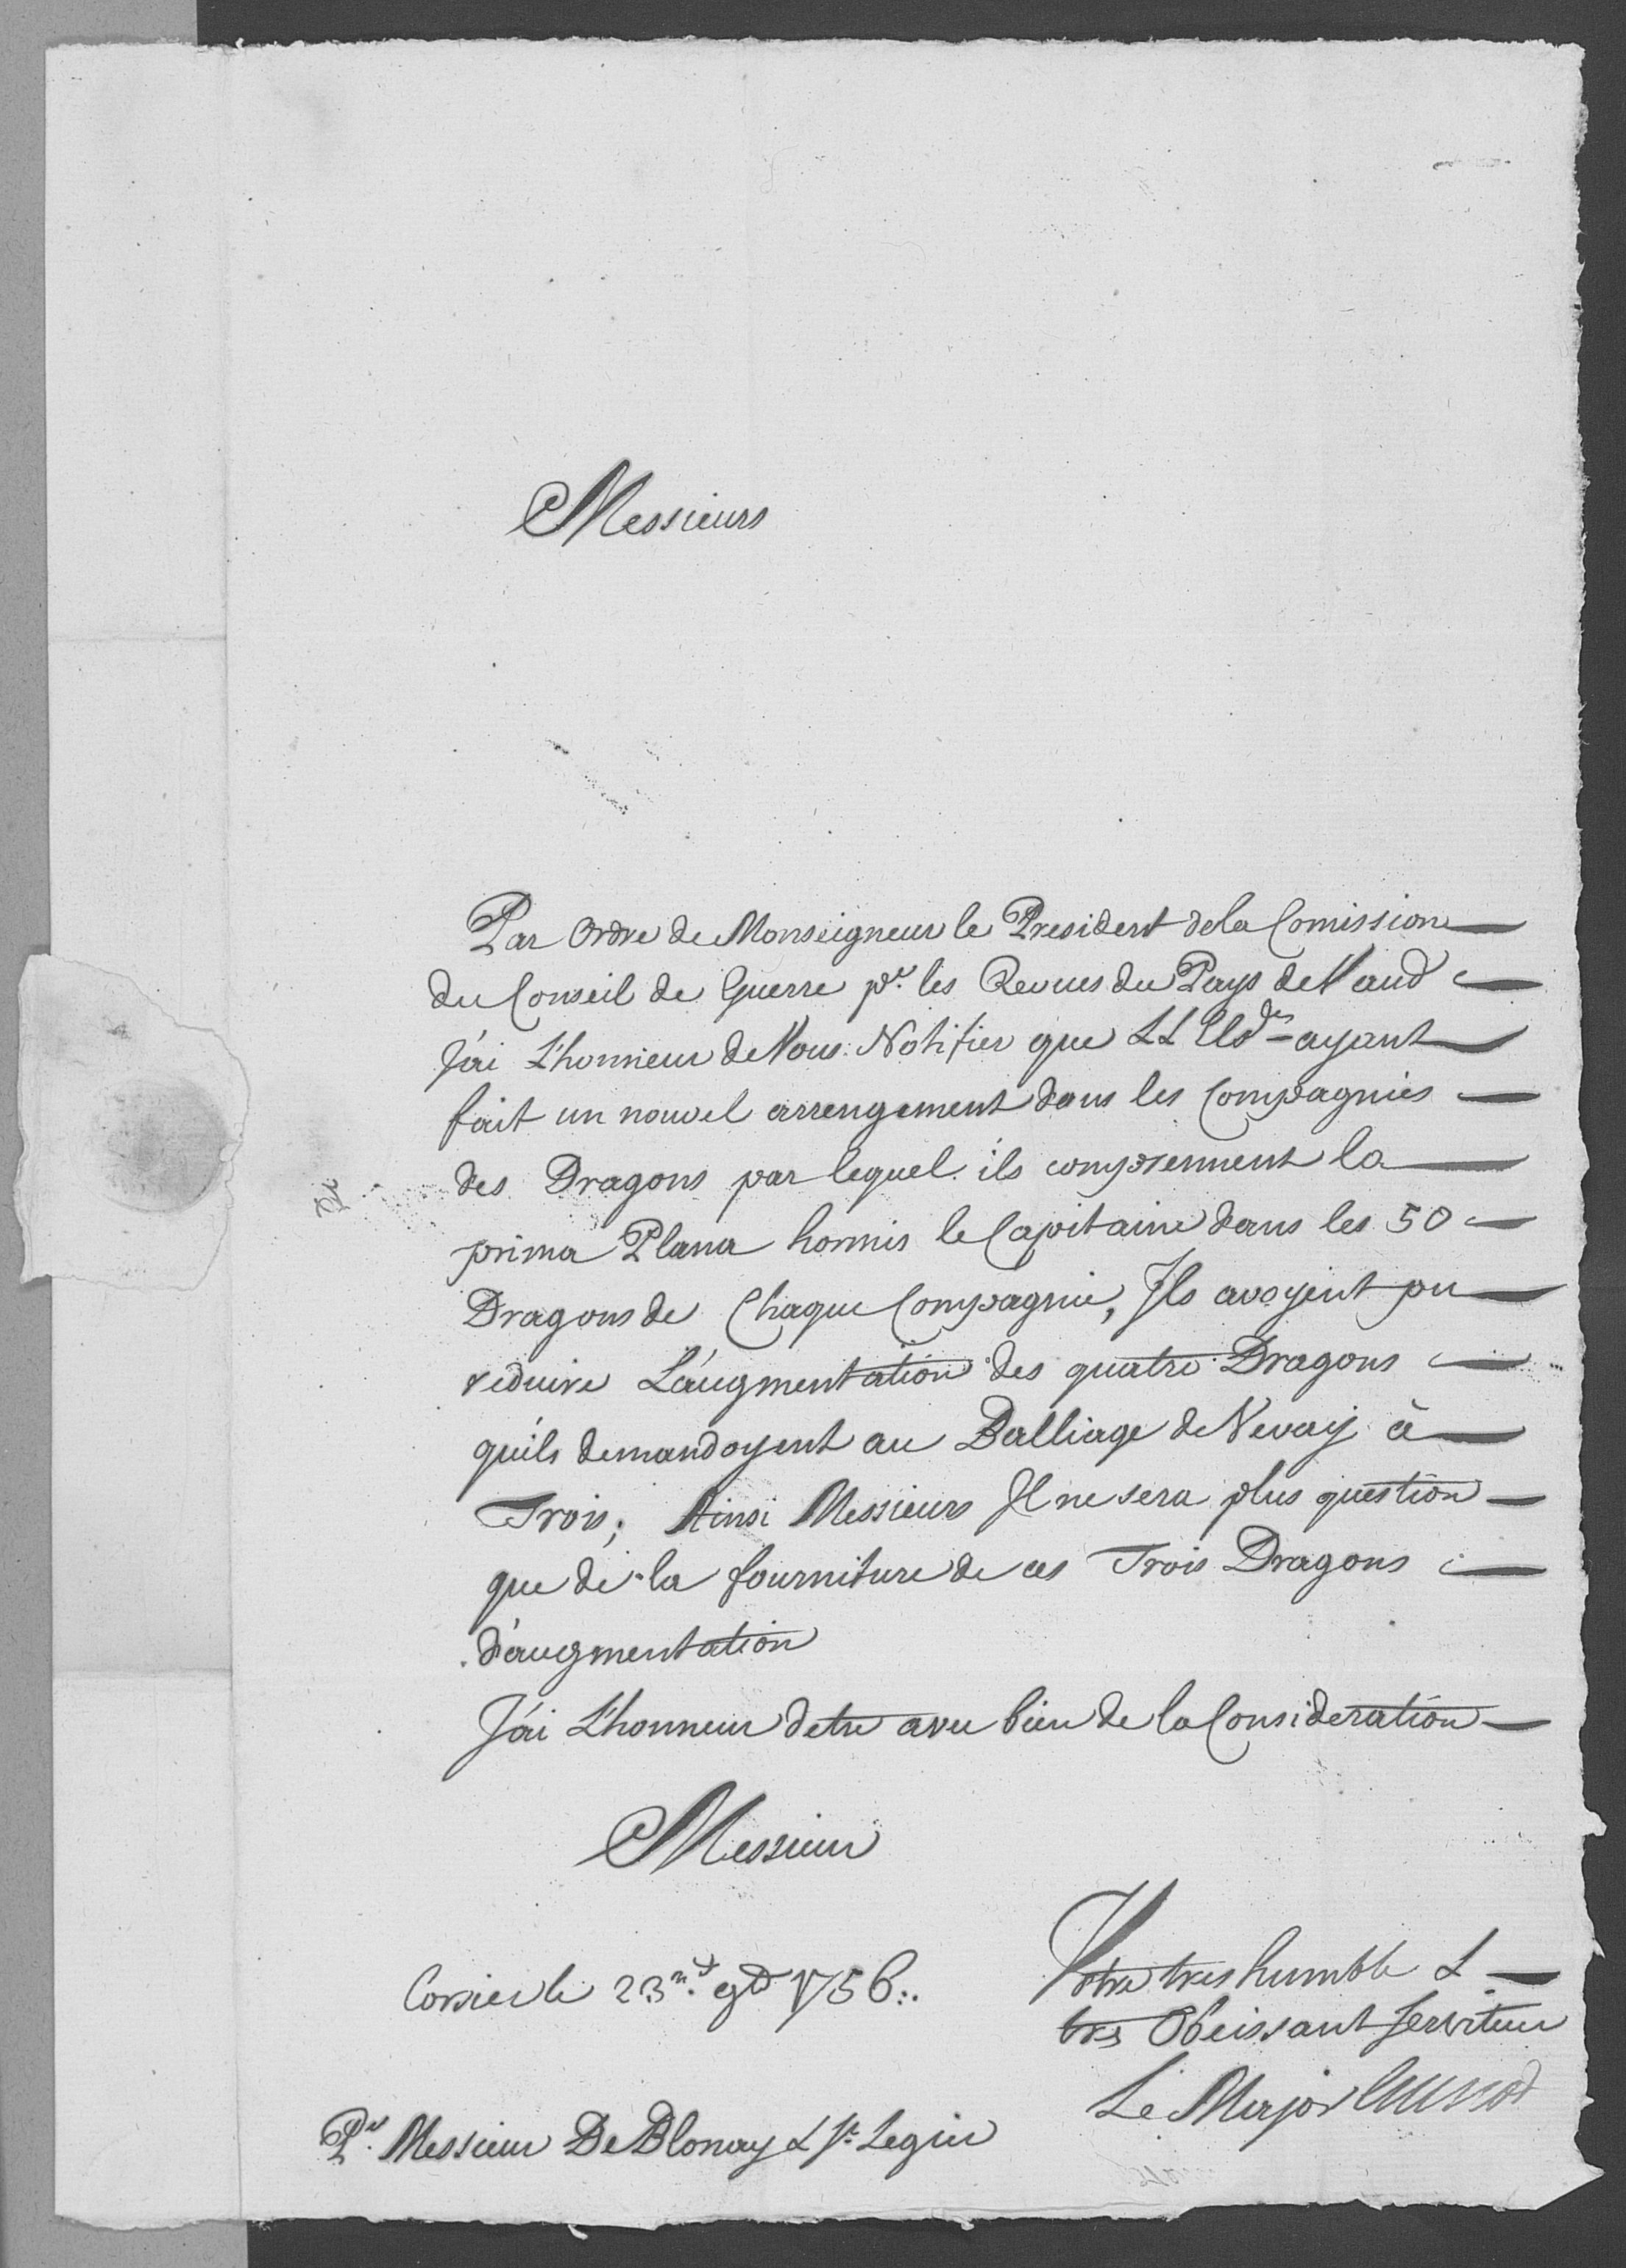 Messieurs
Par Ordre de Monseigneur le President de la Comission
du Conseil de Guerre pr. les Revues du Pays de Vaud
J'ai L'honnieur de Vous Notifier que LL ayant
fait un nouvel arrengement dans les Compagnies
des Dragons par lequel ils comprennent la
prima Plana hormis le Capitaine dans les 50
Dragons de Chaque Compagnie, Ils avoyent pu
reduire L'augmentation des quatre Dragons
qu'ils demandoyent au Balliage de Vevay à
Trois; Ainsi Messieurs Il ne sera plus question
que de la fourniture de ces Trois Dragons
d'augmentation
J'ai L'honneur detre avec bien de la Consideration
Messieurs
Votre tres humble &
Corsier le 23me. 9bre 1756.
tres Obeissant Serviteur
Le Major
Pr. Messieurs De Blonay & St. Legier